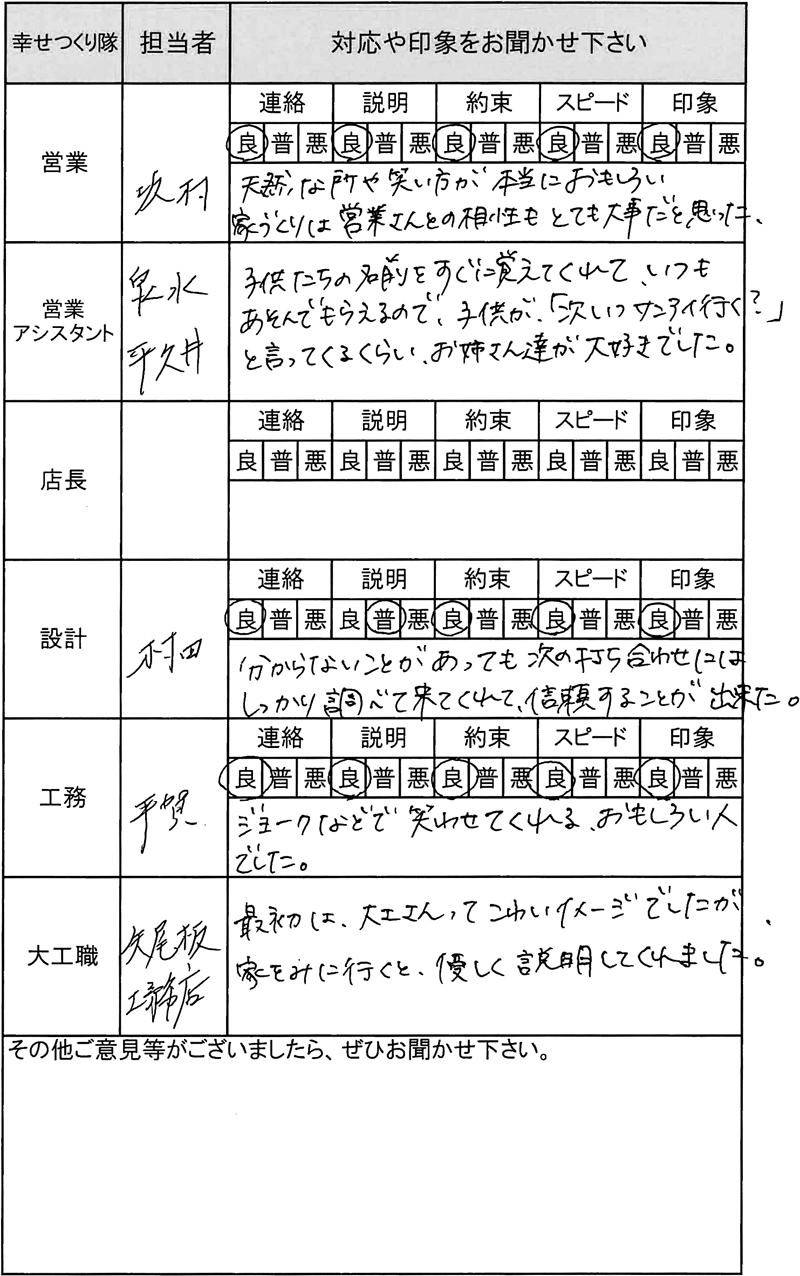 幸せつくり隊 担当者 対応や印象をお聞かせ下さい
連絡 説明 約束 スピード 印象
良 普 悪 良 普 悪 良 普 悪 良 普 悪 良 普 悪
営業 坂村
天然な所や笑い方が本当におもしろい
家づくりは営業さんとの相性もとても大事だと思った、
営業
アシスタント
泉水
平久井
子供たちの名前をすぐに覚えてくれて、いつも
あそんでもらえるので、子供が、「次いつサンアイ行く?」
と言ってくるくらい、お姉さん達が大好きでした。
店長
連絡 説明 約束 スピード 印象
良 普 悪 良 普 悪 良 普 悪 良 普 悪 良 普 悪
連絡 説明 約束 スピード 印象
良 普 悪 良 普 悪 良 普 悪 良 普 悪 良 普 悪
設計 村田
分からないことがあっても次の打ち合わせには
しっかり調べて来てくれて、信頼することが出来た。
連絡 説明 約束 スピード 印象
良 普 悪 良 普 悪 良 普 悪 良 普 悪 良 普 悪
工務 平賀
ジョークなどで笑わせてくれる、おもしろい人
でした。
大工職
矢尾板
工務店
最初は、大工さんってこわいイメージでしたが、
家をみに行くと、優しく説明してくれました。
その他ご意見等がございましたら、ぜひお聞かせ下さい。